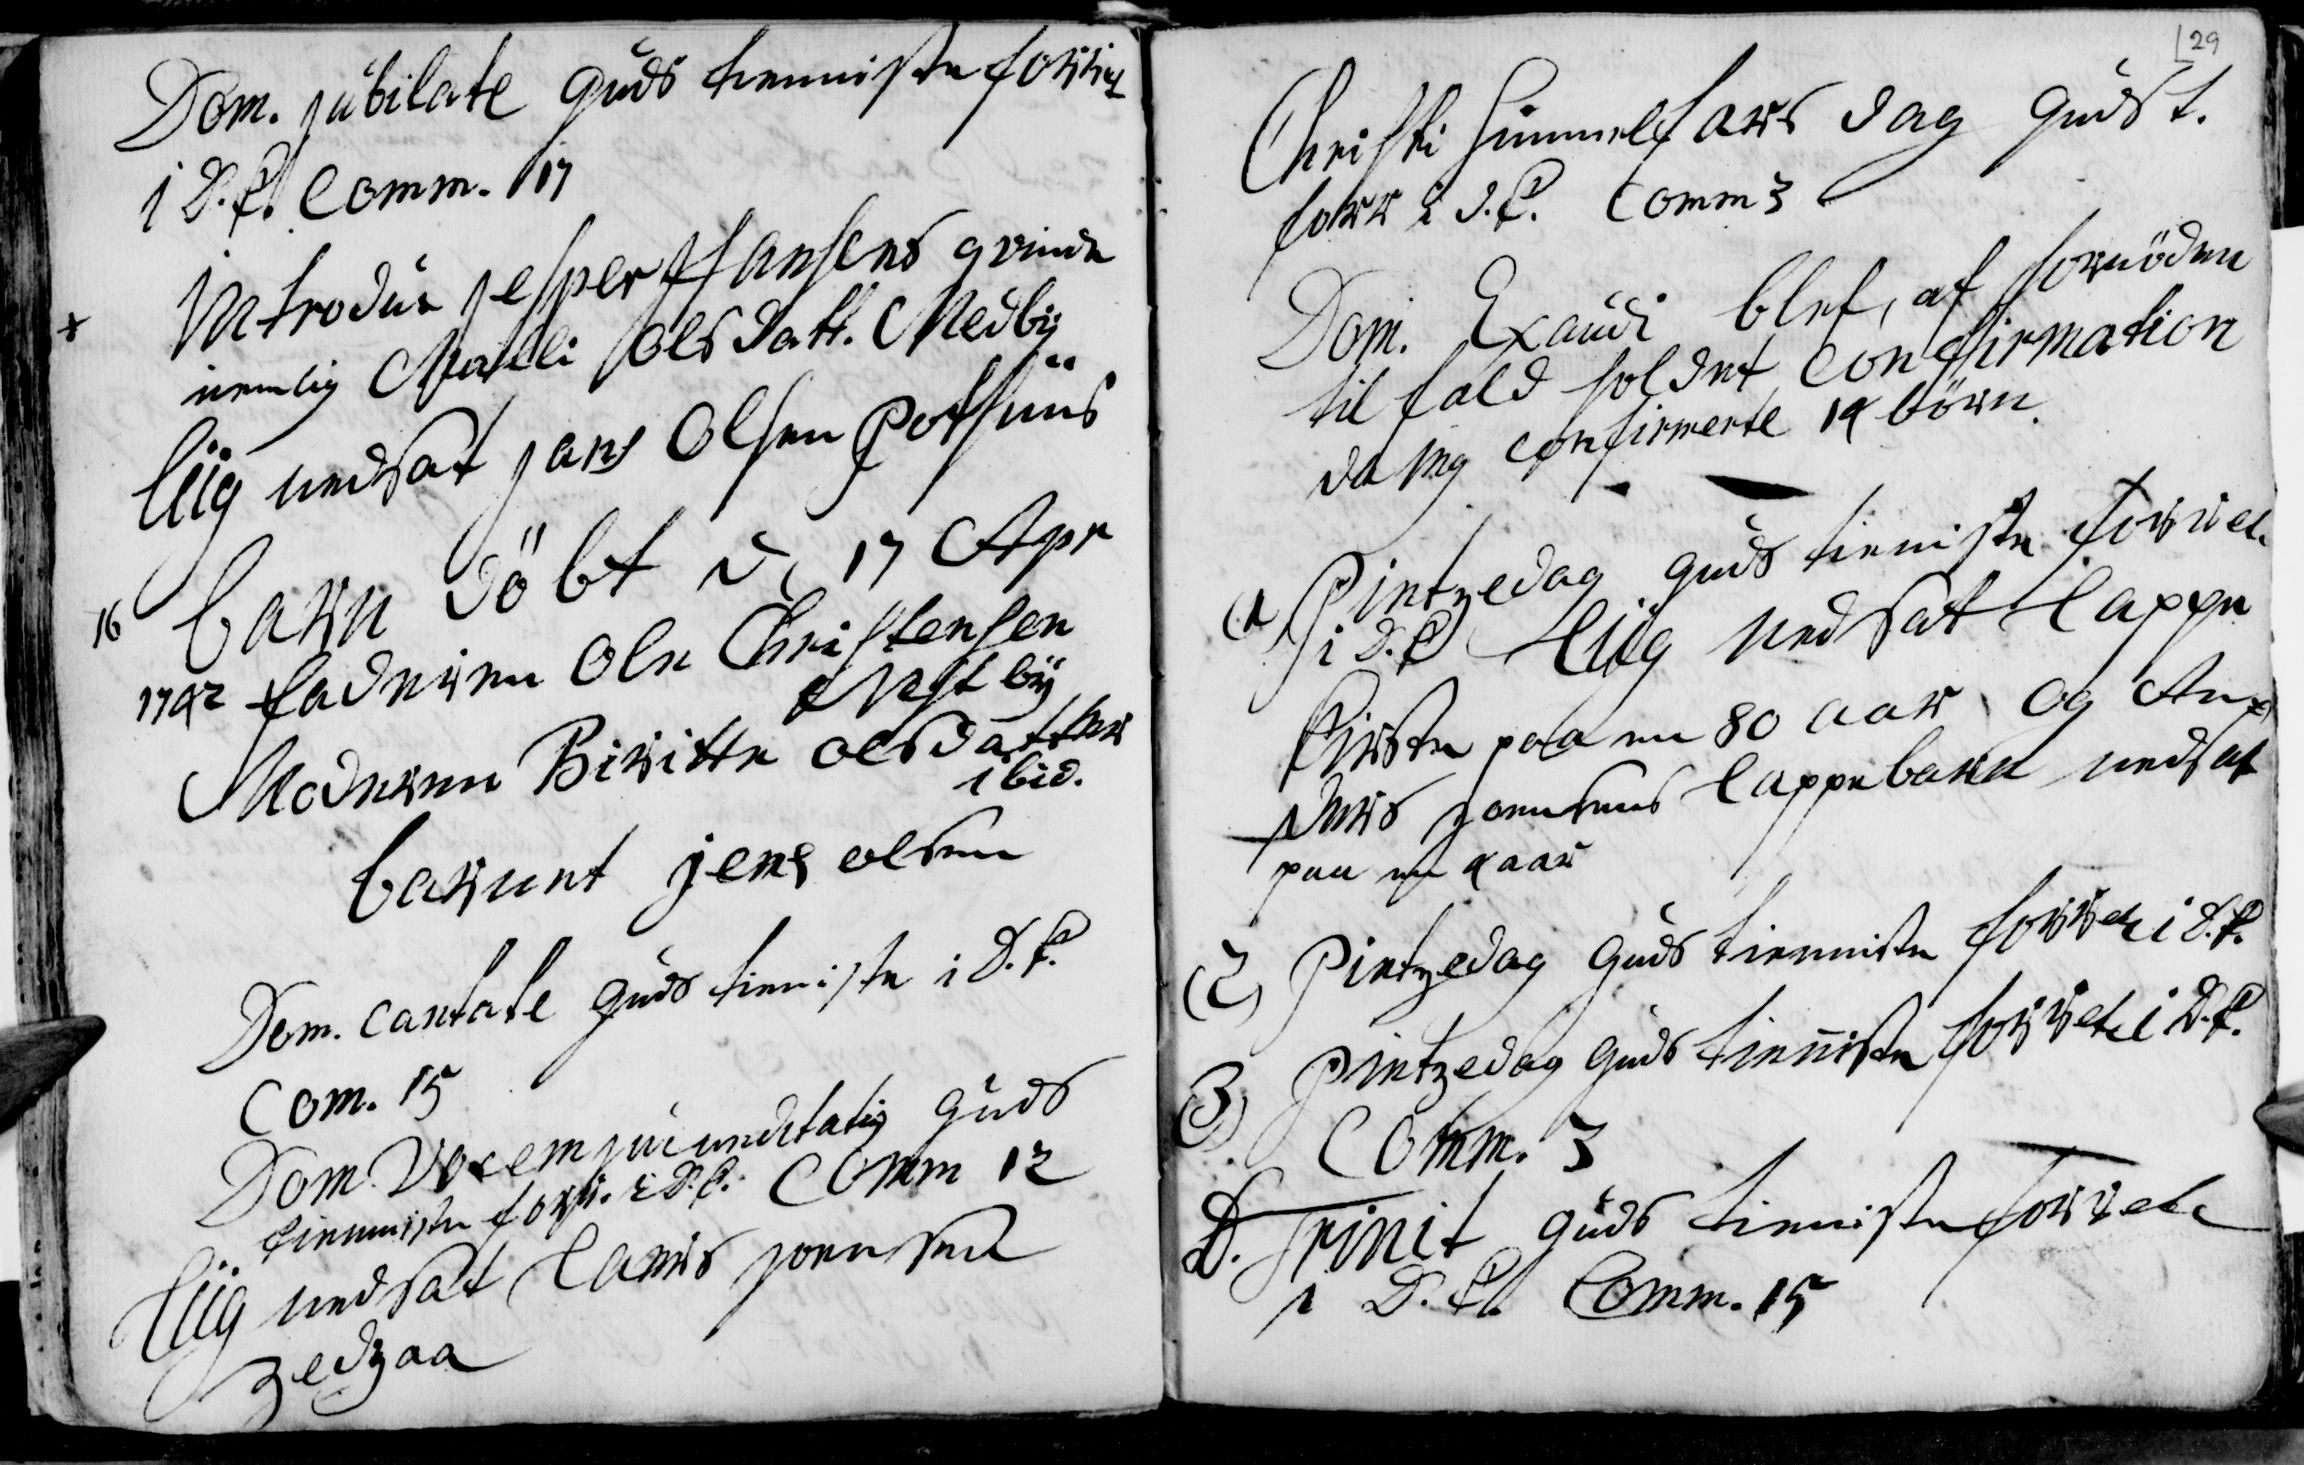 Dom. jubilate Guds tienniste forret
i D.K. Comm. 17
Introdus. jesper Hansens qvinde
nemlig Malli olsdatt. Medby
liig nedsat jans Olsen Pothuus
16 barn döbt d. 17 Apr
1742 faderen Ole Christensen
Nestby
Moderen Biritte olsdatter
ibid.
barnet jens olsen
Dom. Cantate Guds tieniste i D.K.
Com. 15
Dom. Vocem jucunditatis Guds
tienniste forr. i D.K. Comm 12
liig nedsat Lars joensen
29
Christi Himmelfars dag Guds t.
forr i D.K. Comm 3
Dom. Exaudi blef, af fornöden
tilfald holdet Confirmation
da jeg confirmerte 14 börn.
(1 Pintzedag Guds tieniste forret
i D.K. Liig nedsat Lappe
Kirsten paa en 80 aar og An
joensens lappebarn nedsat
paa en 4 aar
(2) Pintzedag Guds tienniste forret i D.K.
(3) Pintzedag Guds tienniste forret i D.K.
Comm. 3
D. Trinit Guds tienniste forret
i D.K. Comm. 15